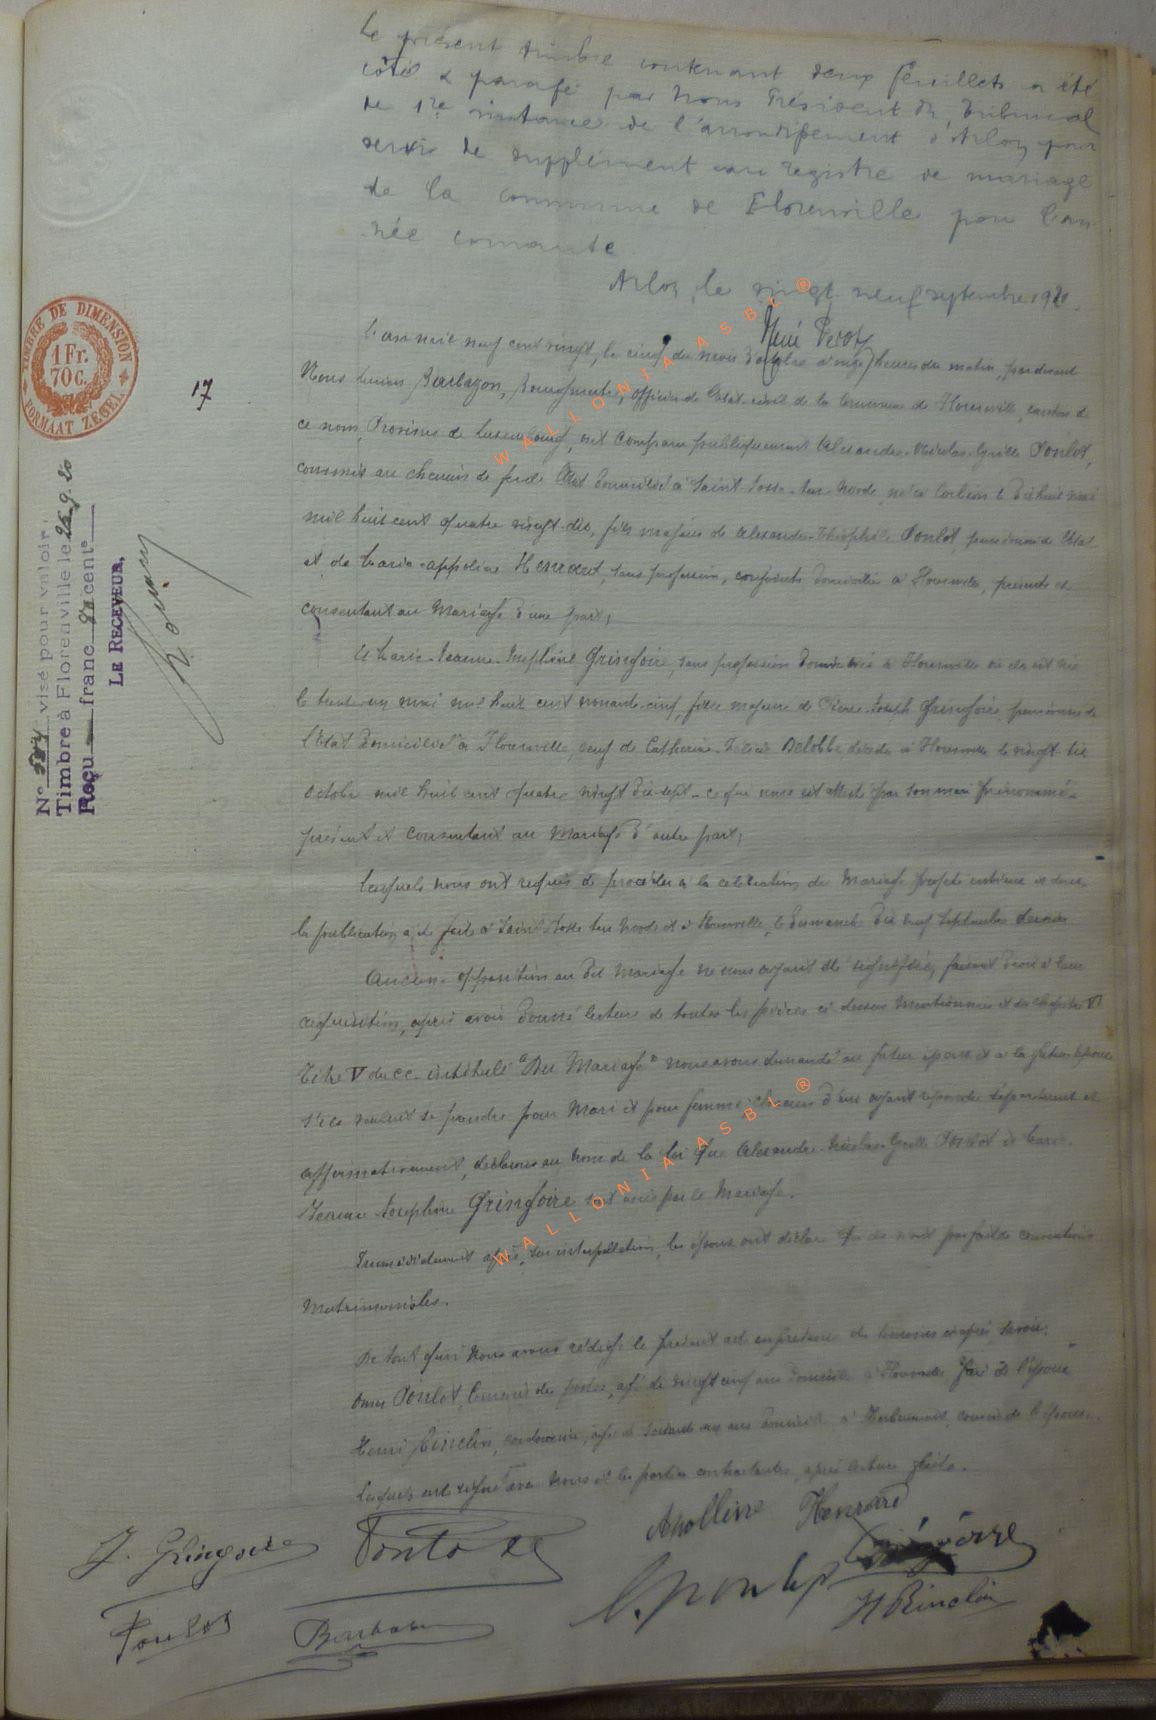 Le présent timbre contenant deux feuillets a été
côté & parafé par Nous Président du Tribunal
de 1re instance de l'arrondissement d'Arlon pour
servir de supplément au registre de mariage
de la commune de Florenville pour l'an-
née courante.
Arlon, le vingt neuf septembre 1920.
TIMBRE DE DIMENSION
1 Fr.
70 C.
FORMAAT ZEGEL
17
N° visé pour valoir
Timbre à Florenville le 25.9.20
Reçu franc cent
LE RECEVEUR,
L'an mil neuf cent vingt, le cinq du mois d'octobre à onze heures du matin, pardevant
Nous Barbazon, Bourgmestre, officier de l'Etat-civil de la Commune de Florenville, canton de
ce nom, Province de Luxembourg, ont comparu publiquement Alexandre-Nicolas-Poulot,
commis au chemin de fer de l'Etat domicilié à Saint-Josse-ten-Noode, né à le dix huit mai
mil huit cent quatre vingt-dix, fils majeur de Alexandre-Théophile Poulot, pensionné de l'Etat
et de Marie-appoline Henrard, sans profession, conjoints domiciliés à Florenville, présents et
consentant au Mariage d'une part;
Et Marie-Jeanne-Joséphine Gringoire, sans profession domiciliée à Florenville où elle est née
le trente un mai mil huit cent nonante-cinq, fille majeure de Pierre-Joseph Gringoire, pensionné de
l'Etat domicilié à Florenville, veuf de Catherine- Delobbe décédée à Florenville le vingt-six
octobre mil huit cent quatre vingt dix-sept - ce que nous est attesté par son mari prénommé -
présent et consentant au Mariage d'autre part;
Lesquels nous ont requis de procéder à la célébration du Mariage projeté entre eux et dont
la publication a été faite à Saint Josse ten Noode et à Florenville, le dimanche dix neuf septembre dernier.
Aucune opposition au dit Mariage ne nous ayant été signifiée, faisant droit à leur
réquisition, après avoir donné lecture de toutes les pièces ci dessus mentionnées et du chapitre VI
Titre V du CC. intitulé "Du Mariage" nous avons demandé au futur époux et à la future épouse
s'ils veulent se prendre pour Mari et pour femme; chacun d'eux ayant répondu séparément et
affirmativement, déclarons au nom de la loi que Alexandre-Nicolas- Poulot et Marie-
Jeanne-Joséphine Gringoire sont unis par le Mariage.
Immédiatement après, sur interpellation, les époux ont déclaré qu'ils n'ont pas fait de conventions
Matrimoniales.
De tout quoi Nous avons rédigé le présent acte en présence des témoins ci-après, savoir:
Omer Poulot, Commis des postes, âgé de vingt cinq ans domicilié à Florenville frère de l'époux
Henri Binclin, cordonnier, âgé de ans domicilié à Herbeumont, cousin de l'épouse.
Lesquels ont signé avec Nous et les parties contractantes, après lecture faite.
J. Gringoire
Apolline Henrard
Poulot
H Binclin
WALLONIA ASBL ®
WALLONIA ASBL ®